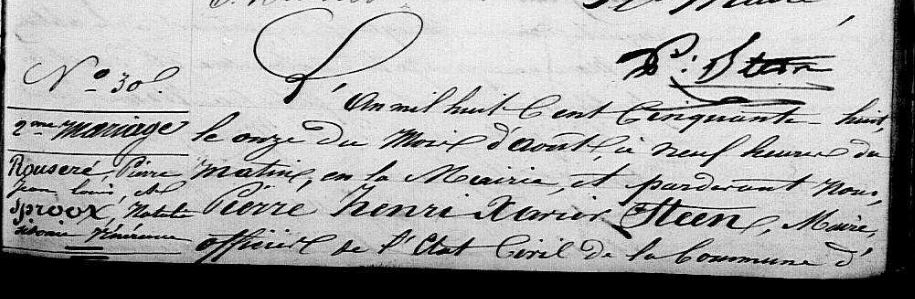 Maire,
P. Steen
N° 30.
2me mariage
Rouseré, Pierre
Jean Louis, et
Sproox, Natalie
L'An mil huit Cent Cinquante-huit,
le onze du Mois d'août, à neuf heures du
matin, en la Mairie, et pardevant nous,
Pierre Henri Xavier Steen, Maire,
officier de l'État Civil de la Commune d'